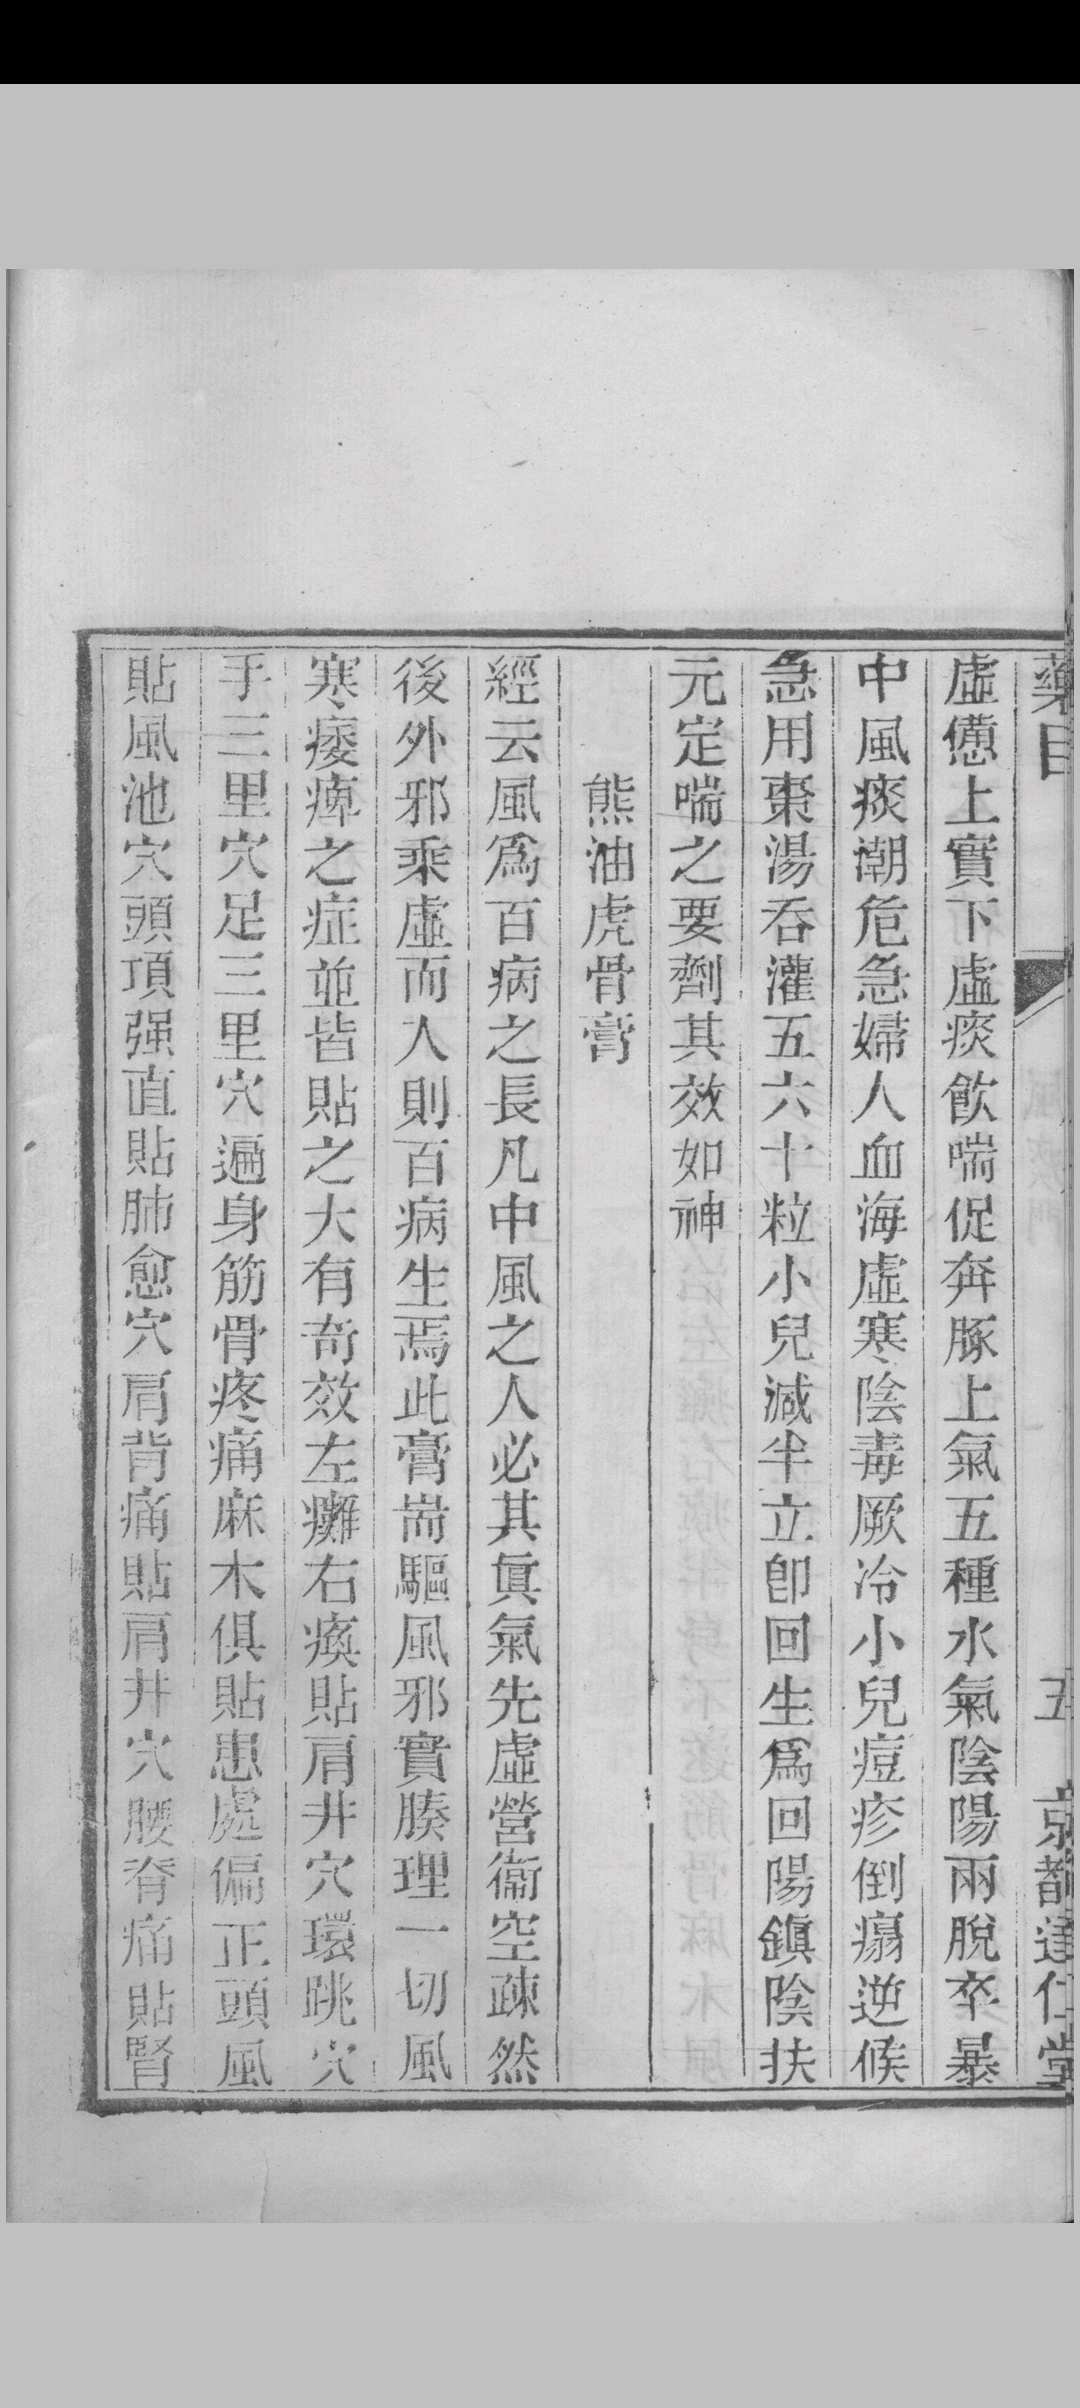 藥目 五 京都達仁堂
虛憊上實下虛痰飮喘促奔豚上氣五種水氣陰陽兩脫卒暴
中風痰潮危急婦人血海虛寒陰毒厥冷小兒痘疹倒瘍逆候
急用棗湯吞灌五六十粒小兒減半立卽回生爲回陽鎭陰扶
元定喘之要劑其效如神
熊油虎骨膏
經云風爲百病之長凡中風之人必其眞氣先虛營衞空疎然
後外邪乘虛而入則百病生焉此膏耑驅風邪實腠理一切風
寒痿痺之症並皆貼之大有奇效左癱右瘓貼肩井穴環跳穴
手三里穴足三里穴遍身筋骨疼痛麻木俱貼患處偏正頭風
貼風池穴頭項强直貼肺愈穴肩背痛貼肩井穴腰脊痛貼腎